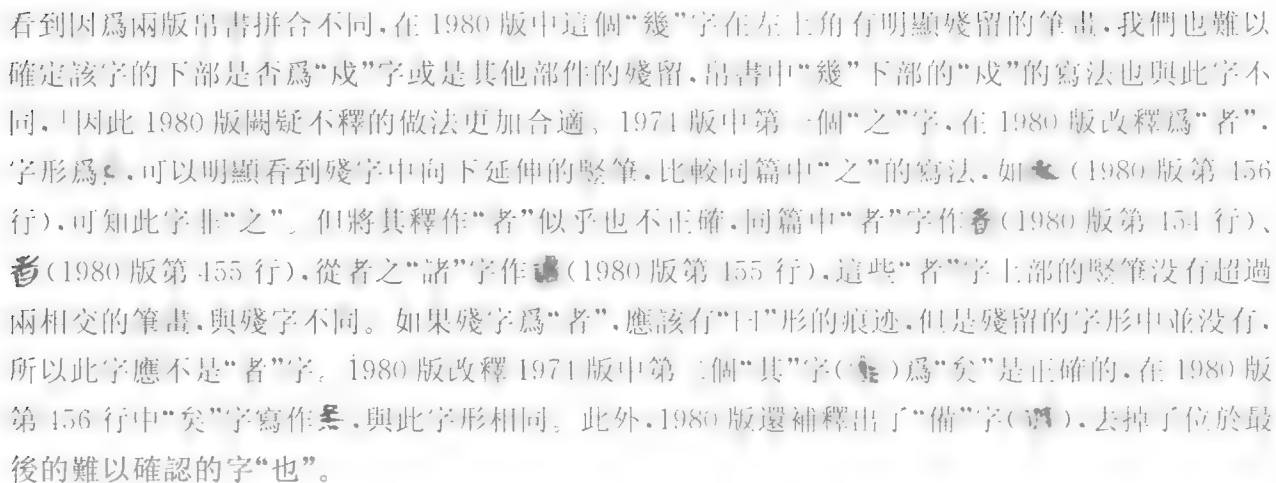 看到因爲兩版帛書拼合不同，在 1980 版中這個“幾”字在左上角有明顯殘留的筆畫，我們也難以
確定該字的下部是否爲“戍”字或是其他部件的殘留，帛書中“幾”下部的“戍”的寫法也與此字不
同，因此 1980 版闕疑不釋的做法更加合適。1974 版中第一個“之”字，在 1980 版改釋爲“者”，
字形爲，可以明顯看到殘字中向下延伸的竪筆，比較同篇中“之”的寫法，如（1980 版第 456
行），可知此字非“之”。但將其釋作“者”似乎也不正確，同篇中“者”字作（1980 版第 454 行）、
（1980 版第 455 行），從者之“諸”字作（1980 版第 455 行），這些“者”字上部的竪筆没有超過
兩相交的筆畫，與殘字不同。如果殘字爲“者”，應該有“日”形的痕迹，但是殘留的字形中並没有，
所以此字應不是“者”字。1980 版改釋 1974 版中第二個“其”字（）爲“矣”是正確的，在 1980 版
第 456 行中“矣”字寫作，與此字形相同。此外，1980 版還補釋出了“備”字（），去掉了位於最
後的難以確認的字“也”。